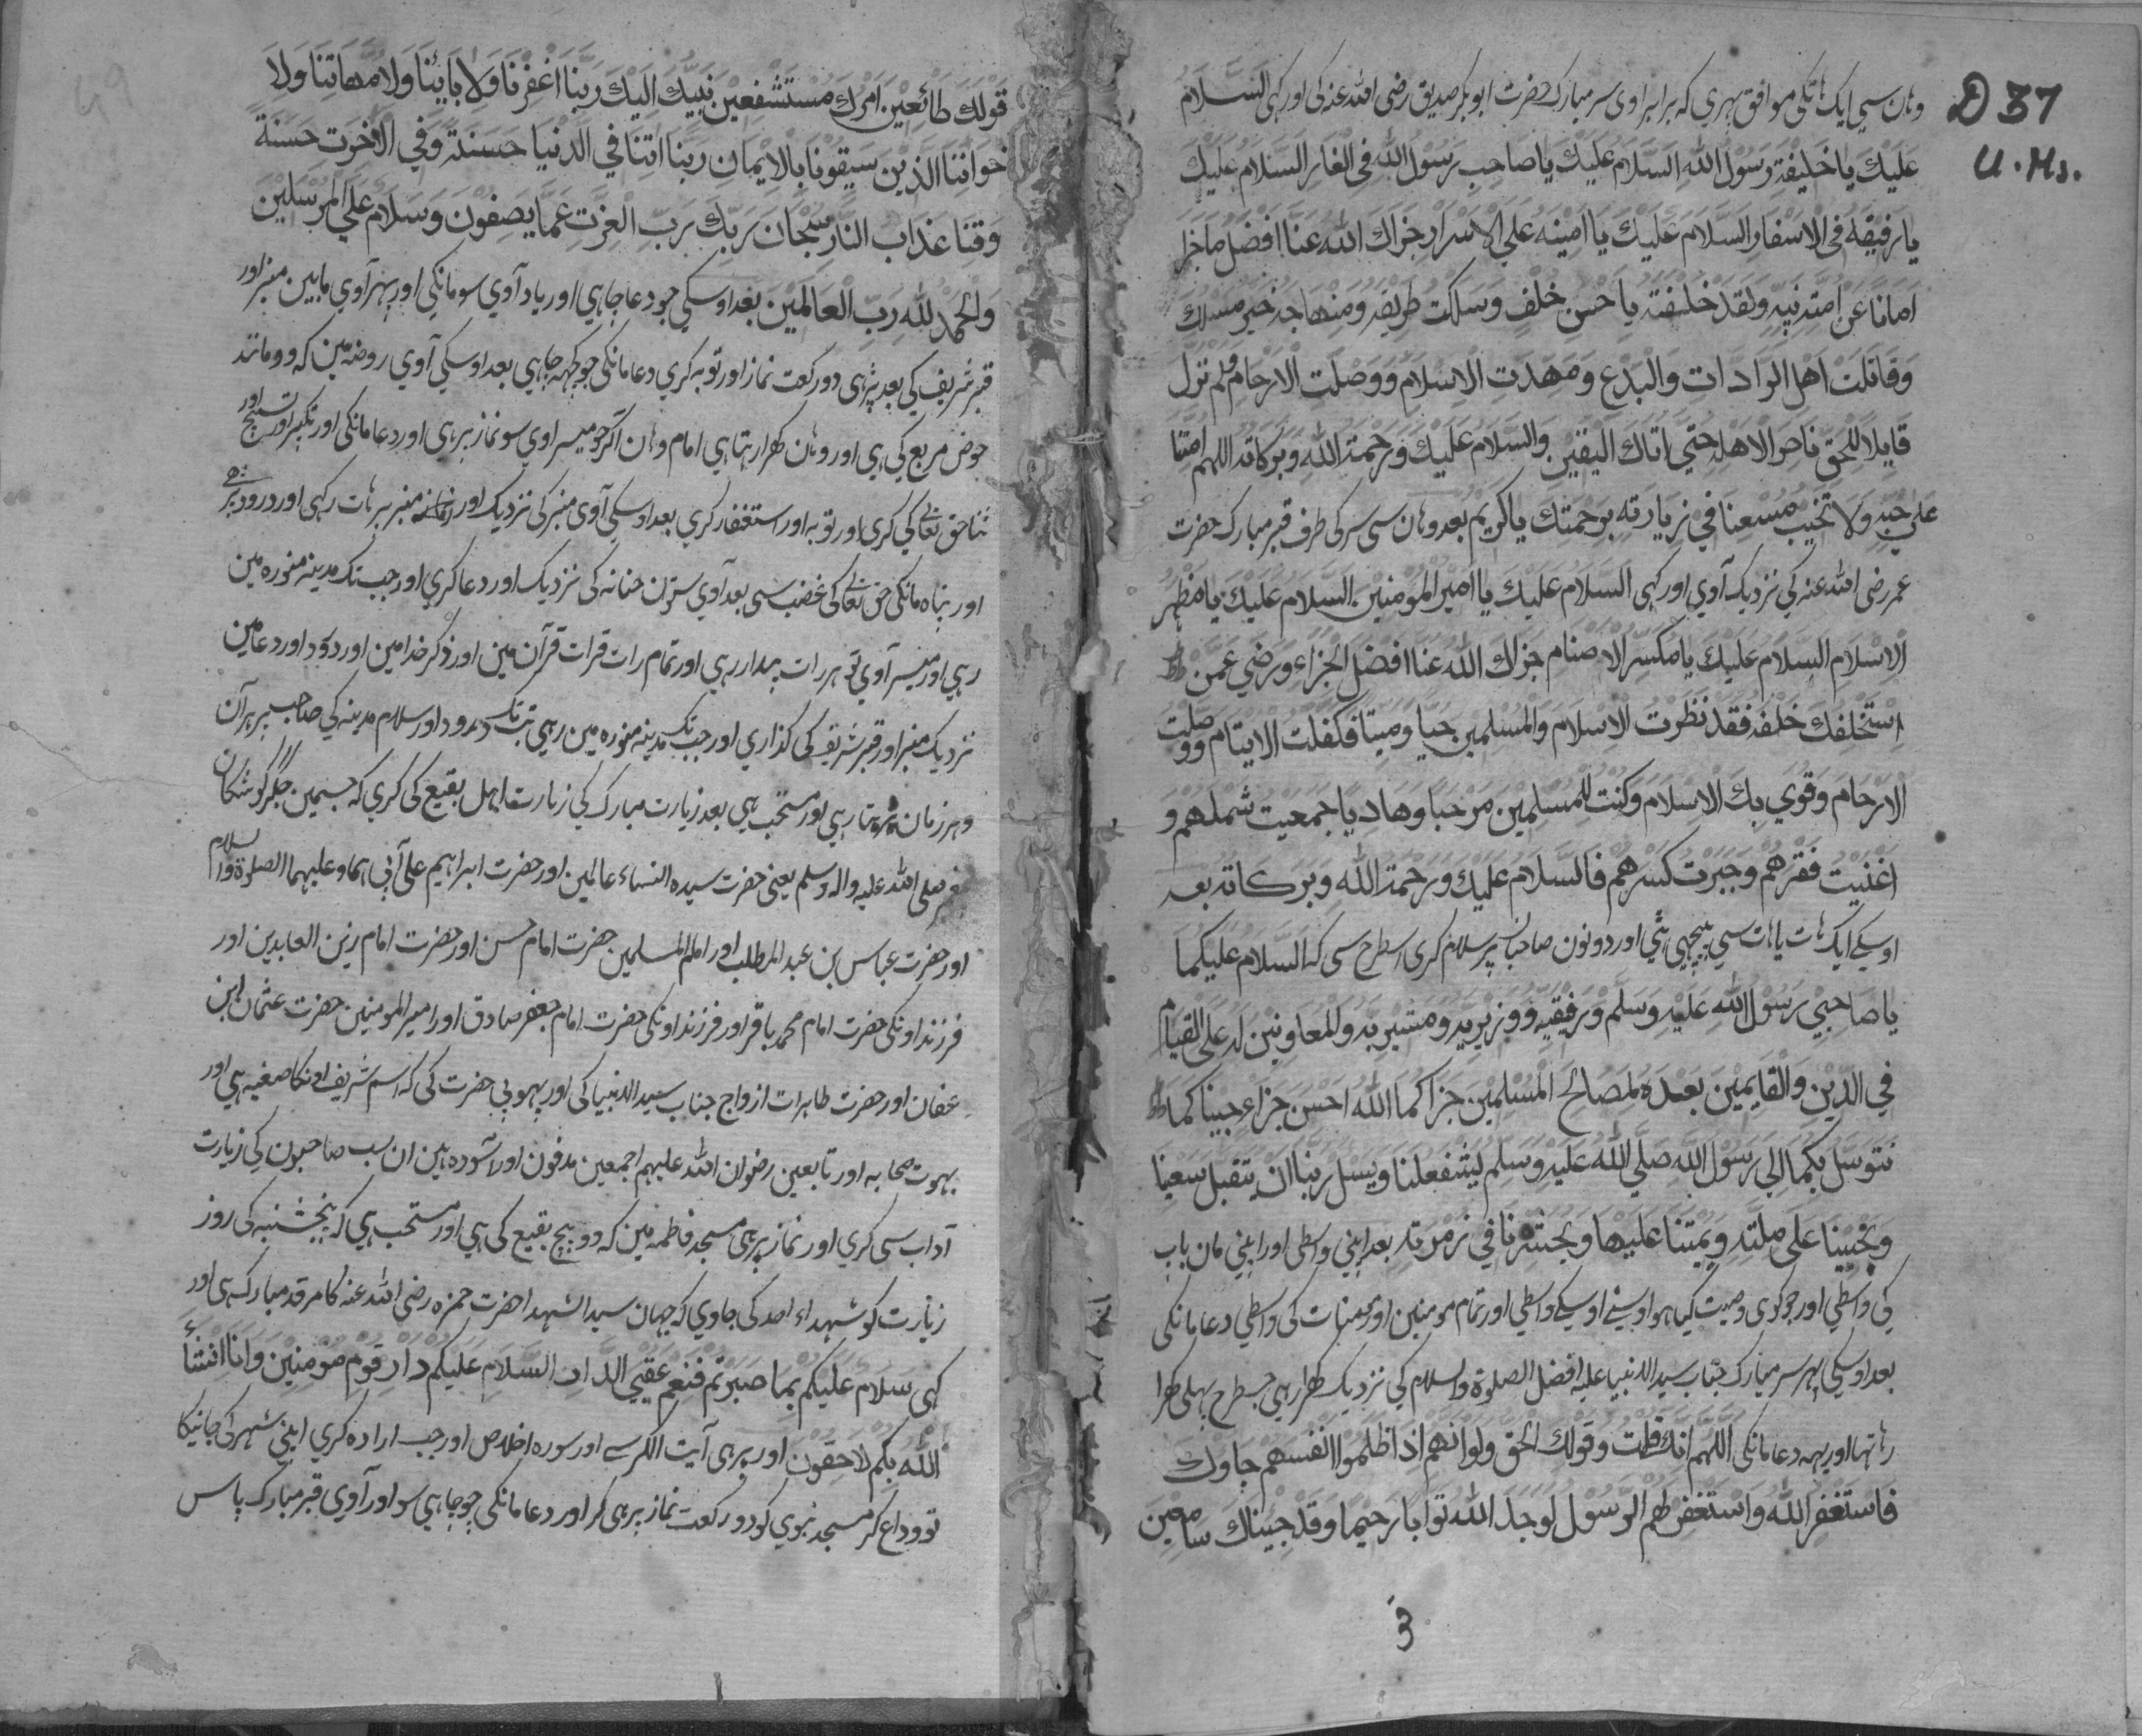 D 37
U. Ms.
وہان سی ایک ہاتکی موافق پہری کہ برابر اوی سر مبارک حضرت ابوبکر صدیق رضی الله عنہ کی اور کہی السَّلام
عَلَیكَ یا خلیفة رسول الله السلام علیك یا صاحب رسول الله فی الغار السلام علیك
یا رفیقه فی الاسفار السلام علیك یا امینه علی الاسرار جزاك الله عنا افضل ما جزا
اماما عن امة نبیه ولقد خلفته یا حسن خلف وسلکت طریقه ومنهاجه خیر مسلك
وقاتلت اهل الرادات والبدع ومهدت الاسلام ووصلت الارحام ولم تزل
قایلا للحق ناصرالاهله حتی اتاك الیقین والسلام علیك ورحمة الله وبرکاته اللهم امتنا
علی حبه ولا تخیب مسعنا فی زیارته برحمتك یا کریم بعد وہان سی سرکی طرف قبر مبارک حضرت
عمر رضی الله عنہ کی نزدیک آوی اور کہی السلام علیك یا امیر المؤمنین السلام علیك یا مظهر
الاسلام السلام علیك یا مکسر الاصنام جزاك الله عنا افضل الجزاء ورضی عمن
استخلفك خلفه فقد نظرت الاسلام والمسلمین حیا ومیتا فکفلت الایتام ووصلت
الارحام وقوی بك الاسلام وکنت للمسلمین مرحبا وهادیا جمعیت شملهم و
اغنیت فقرهم وجبرت کسرهم فالسلام علیك ورحمة الله وبرکاته بعد
اوسکی ایک ہات یا ہات سی پیچهی ہٹی اور دونون صاحبان پر سلام کری اسطرح سی کہ السلام علیکما
یا صاحبی رسول الله علیه وسلم ورفیقیه ووزیریه ومشیریه والمعاونین له علی القیام
فی الدین والقایمین بعده لمصالح المسلمین جزاکما الله احسن جزاء جیناکما
نتوسل بکما الی رسول الله صلی الله علیه وسلم لیشفعلنا ویسل ربنا ان یتقبل سعینا
ویحیینا علی ملته ویمتنا علیها ویحشرنا فی زمرته بعد اپنی واسطی اور اپنی مان باپ
کی واسطی اور جو کوی وصیت کیا ہو اوسنی اوسکے واسطی اور تمام مومنین اور مومنات کی واسطی دعا مانکی
بعد اوسکی پهر سر مبارک جناب سید الانبیا علیہ افضل الصلوة والسلام کی نزدیک کهڑا رہی جسطرح پہلی کهڑا
رہا تہا اور یہہ دعا مانکی اللهم انك قلت وقولك الحق ولوانهم اذ اظلموا انفسهم جاوك
فاستغفر الله واستغفر لهم الرسول لوجد الله توابا رحیما وقد جیناك سامعین
3
قولك طائعین امرك مستشفعین نبیك الیك ربنا اغفرنا ولاباینا ولامهاتنا ولا
خواننا الذین سبقونا بالایمان ربنا اتنا فی الدنیا حسنة وفی الاخرت حسنة
وقنا عذاب النار سبحان ربك رب العزت عما یصفون وسلام علی المرسلین
والحمد لله رب العالمین بعد اوسکی جو دعا چاہی اور یاد آوی سو مانکی اور پہر آوی مابین منبر اور
قبر شریف کی بعد پڑہی دورکعت نماز اور توبہ کری دعا مانکی جو کچہہ چاہی بعد اوسکی آوی روضہ مین کہ وو مانند
حوض مربع کی ہی اور وہان کهڑا رہتا ہی امام وہان اکر جو میسر اوی سو نماز پرہی اور دعا مانکی اور تکبیر اور تسبیح اور
ثنا حق تعالی کی کری اور توبہ اور استغفار کری بعد اوسکی آوی منبر کی نزدیک اور منبر پر ہات رکهی اور درود پڑہے
اور پناہ مانکی حق تعالی کی غضب سی بعد آوی ستون حنانہ کی نزدیک اور دعا کری اور جب تک مدینہ منورہ مین
رہی اور میسر آوی تو ہر رات بیدار رہی اور تمام رات قرات قرآن مین اور ذکر خدا مین اور درود اور دعا مین
نزدیک منبر اور قبر شریف کی کذاری اور جب تک مدینہ منورہ مین رہی تب تک درود اور سلام مدینہ کی صاحب پر ہر آن
وہر زمان پڑہتا رہی اور مستحب ہی بعد زیارت مبارک کی زیارت اہل بقیع کی کری کہ جسمین جگر گوشکان
صلی الله علیہ والہ وسلم یعنی حضرت سیدہ النساء عالمین اور حضرت ابراہیم علی آبی ہما وعلیہما الصلوة والسلام
اور حضرت عباس بن عبد المطلب اور امام المسلمین حضرت امام حسن اور حضرت امام زین العابدین اور
فرزند اونکی حضرت امام محمد باقر اور فرزند اونکی حضرت امام جعفر صادق اور امیر المومنین حضرت عثمان ابن
عفان اور حضرت طاہرات ازواج جناب سید الانبیا کی اور پہوپی حضرت کی کہ اسم شریف اونکا صفیہ ہی اور
بہوت صحابہ اور تابعین رضوان الله علیہم اجمعین مدفون اور آسودہ ہین ان سب صاحبون کی زیارت
آداب سی کری اور نماز پرہی مسجد فاطمہ مین کہ وو بیچ بقیع کی ہی اور مستحب ہی کہ پنجشنبہ کی روز
زیارت کو شہداء احد کی جاوی کہ جہان سید الشہدا حضرت حمزہ رضی الله عنہ کا مرقد مبارک ہی اور
کہی سلام علیکم بما صبرتم فنعم عقبی الدار السلام علیکم دار قوم مومنین وانا انشا
الله بکم لاحقون اور پرہی آیت الکرسے اور سورہ اخلاص اور جب ارادہ کری اپنی شہر کی جانیکا
تو وداع کر مسجد نبوی کو دو رکعت نماز پرہی کر اور دعا مانکی جو چاہی سو اور آوی قبر مبارک پاس